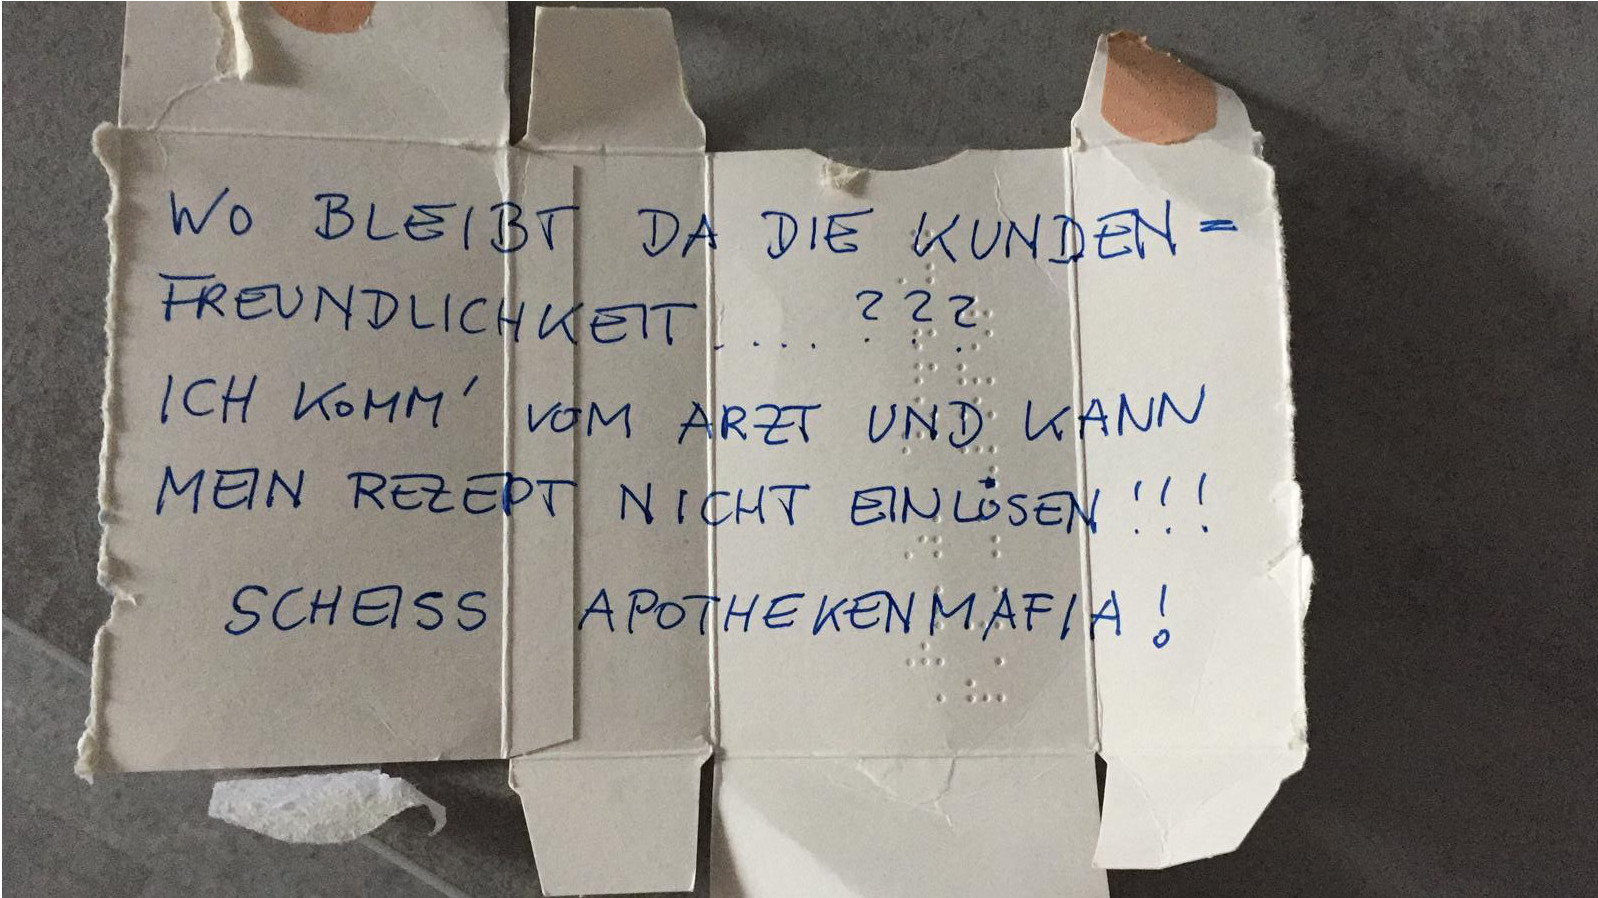 WO BLEIBT DA DIE KUNDEN=
FREUNDLICHKEIT .... ???
ICH KOMM' VOM ARZT UND KANN
MEIN REZEPT NICHT EINLÖSEN!!!
SCHEISS APOTHEKENMAFIA!